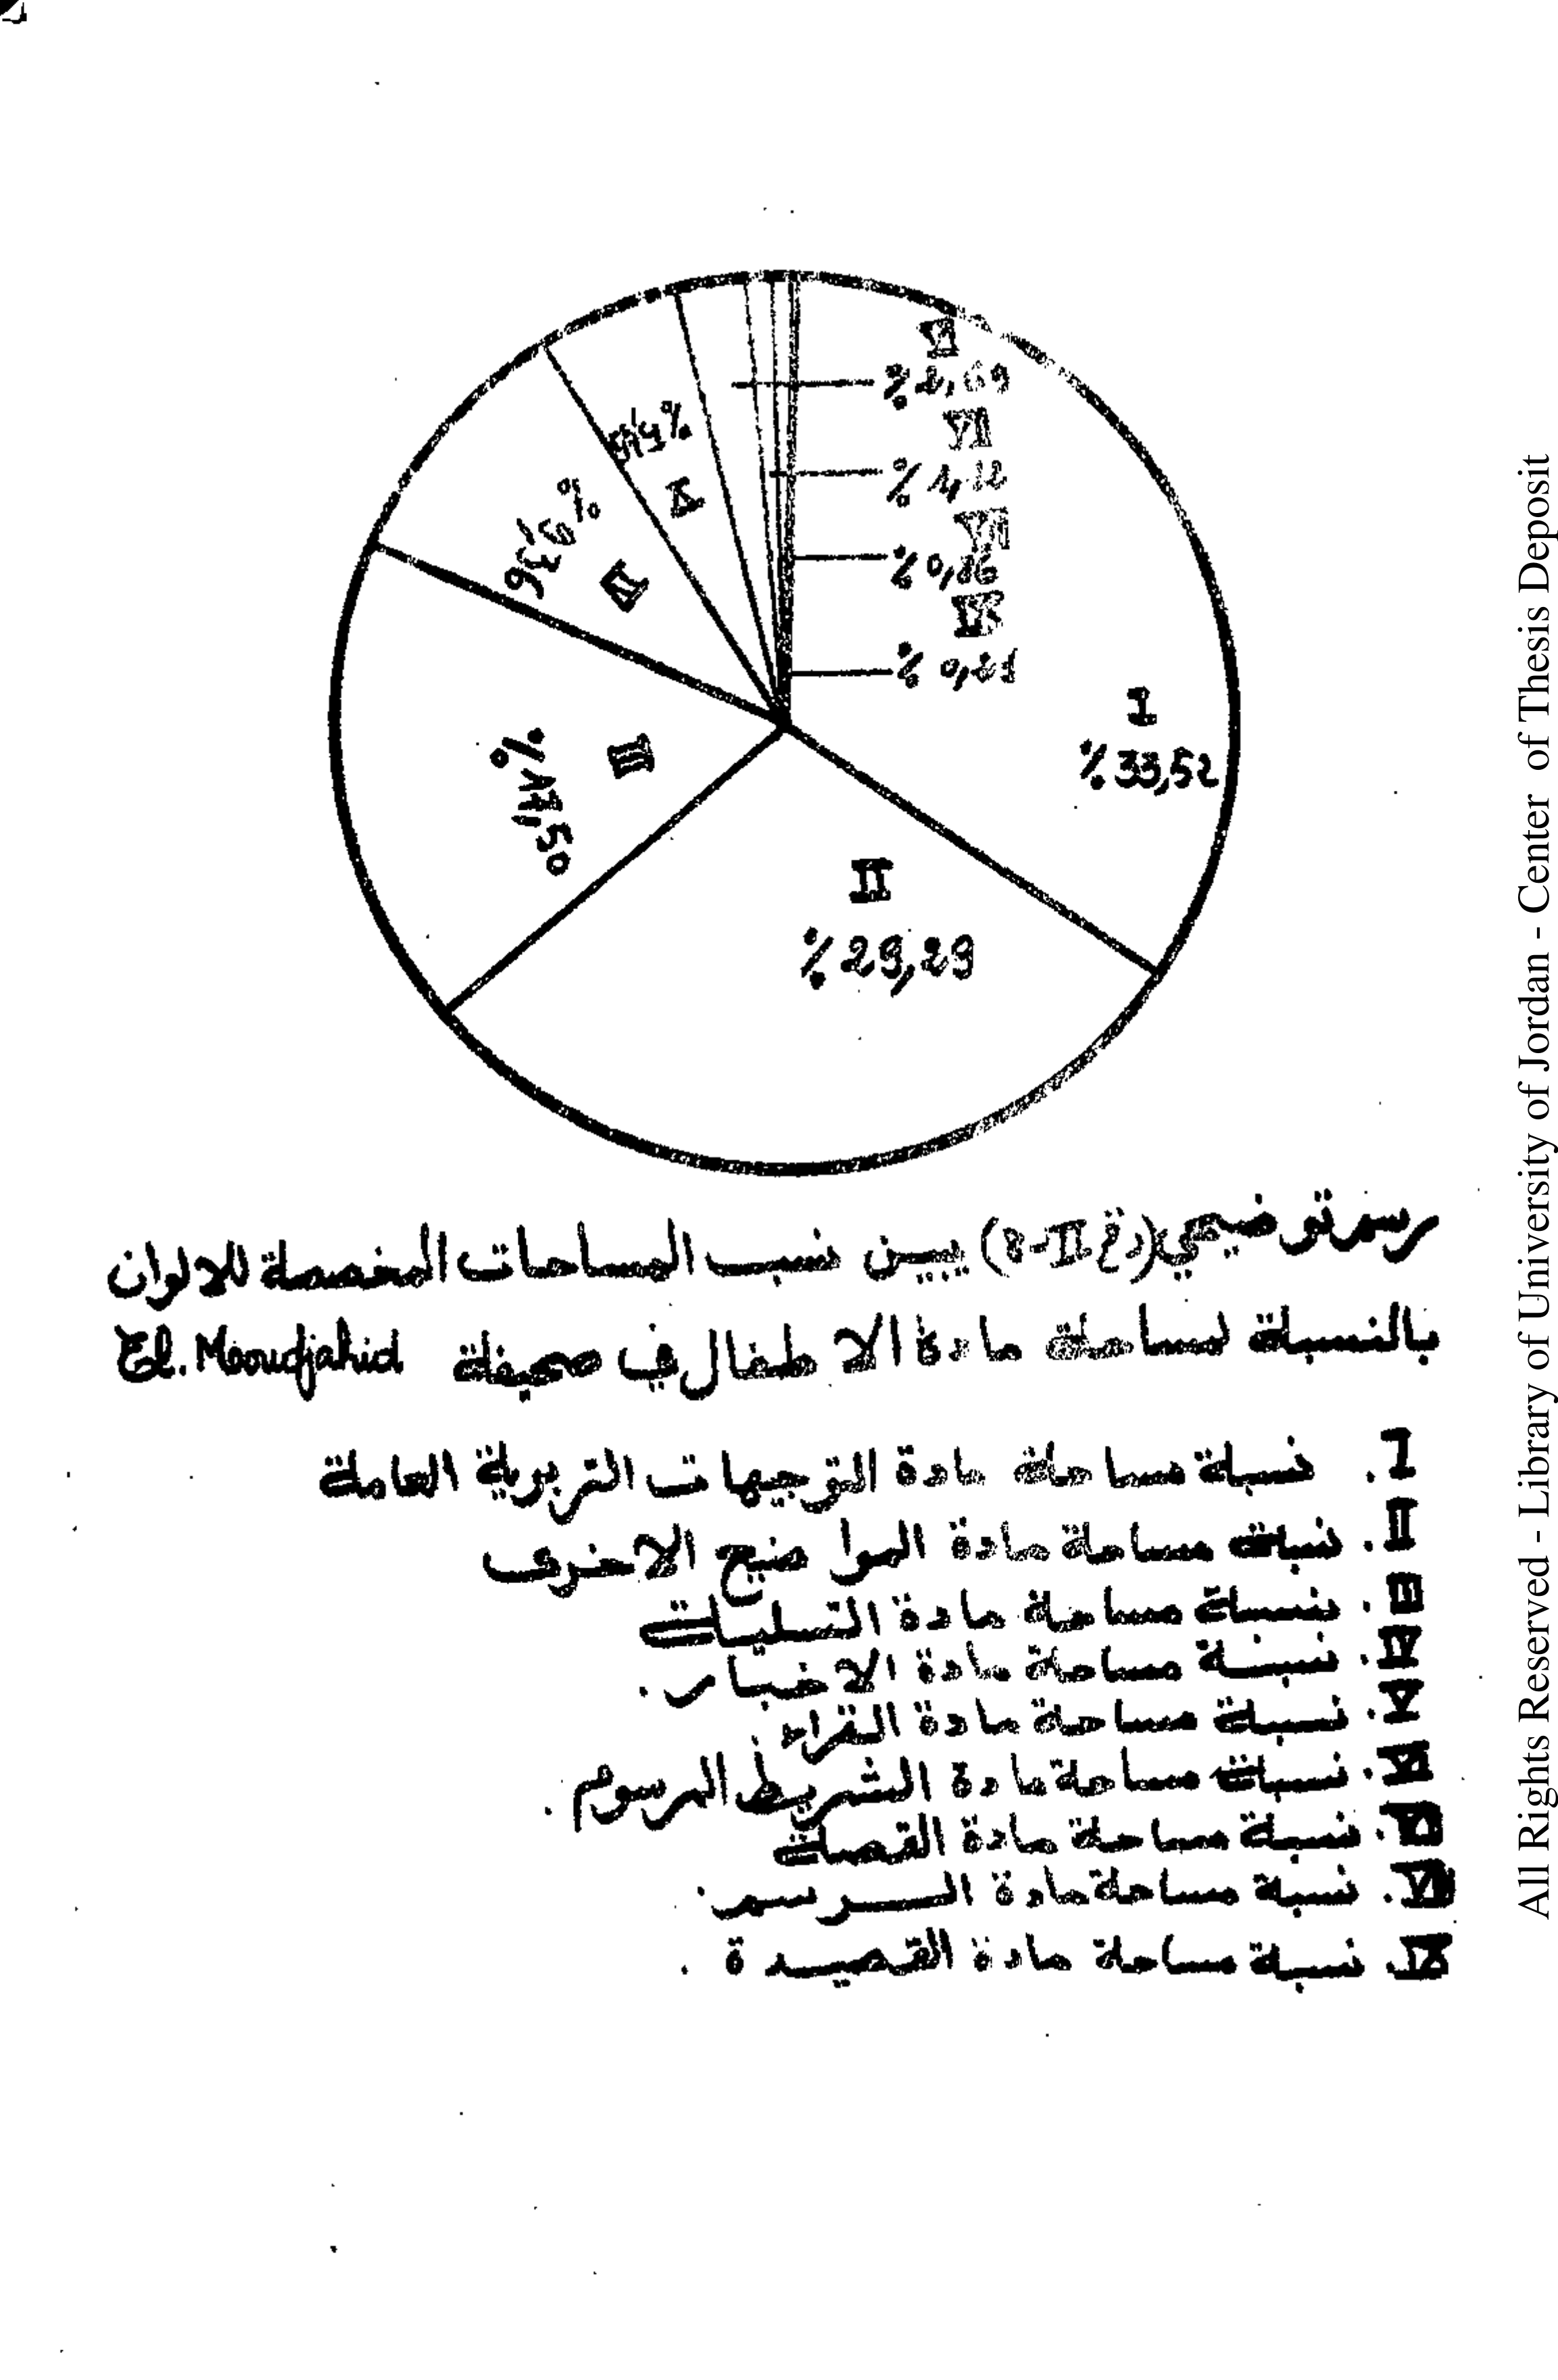 VI
% 2,69
VII
% 1,12
VIII
% 0,86
IX
%
I
% 33,52
II
% 29,29
III
% 17,50
IV
% 9,36
V
رسم توضيحي (رقم II-8) يبين نسب المساحات المخصصة للالوان
بالنسبة لمساحة مادة الاطفال في صحيفة El. Moudjahid
I. نسبة مساحة مادة التوجيهات التربوية العامة
II. نسبة مساحة مادة المواضيع الاخرى
III. نسبة مساحة مادة التسليات
IV. نسبة مساحة مادة الاخبار.
V. نسبة مساحة مادة القراء
VI. نسبة مساحة مادة الشريط المرسوم.
VII. نسبة مساحة مادة القصة
VIII. نسبة مساحة مادة الرسم.
IX. نسبة مساحة مادة القصيدة.
All Rights Reserved - Library of University of Jordan - Center of Thesis Deposit